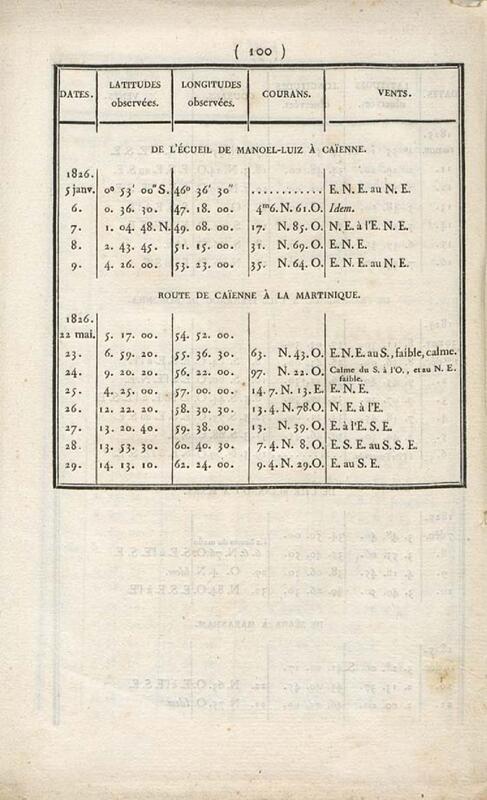 ( 100 )
DATES. LATITUDES observées. LONGITUDES observées. COURANS. VENTS.
DE L'ÉCUEIL DE MANOEL-LUIZ À CAÏENNE.
1826.
5 janv. 0° 53' 00" S. 46° 36' 30" ............ E. N. E. au N. E.
6. 0. 36. 30. 47. 18. 00. 4m6. N. 61. O. Idem.
7. 1. 04. 48. N. 49. 08. 00. 17. N. 85. O. N. E. à l'E. N. E.
8. 2. 43. 45. 51. 15. 00. 31. N. 69. O. E. N. E.
9. 4. 26. 00. 53. 23. 00. 35. N. 64. O. E. N. E. au N. E.
ROUTE DE CAÏENNE À LA MARTINIQUE.
1826.
22 mai. 5. 17. 00. 54. 52. 00.
23. 6. 59. 20. 55. 36. 30. 63. N. 43. O. E. N. E. au S., faible, calme.
24. 9. 20. 20. 56. 22. 00. 97. N. 22. O. Calme du S. à l'O., et au N. E. faible.
25. 4. 25. 00. 57. 00. 00. 14. 7. N. 13. E. E. N. E.
26. 12. 22. 20. 58. 30. 30. 13. 4. N. 78. O. N. E. à l'E.
27. 13. 20. 40. 59. 38. 00. 13. N. 39. O. E. à l'E. S. E.
28. 13. 53. 30. 60. 40. 30. 7. 4. N. 8. O. E. S. E. au S. S. E.
29. 14. 13. 10. 62. 24. 00. 9. 4. N. 29. O. E. au S. E.